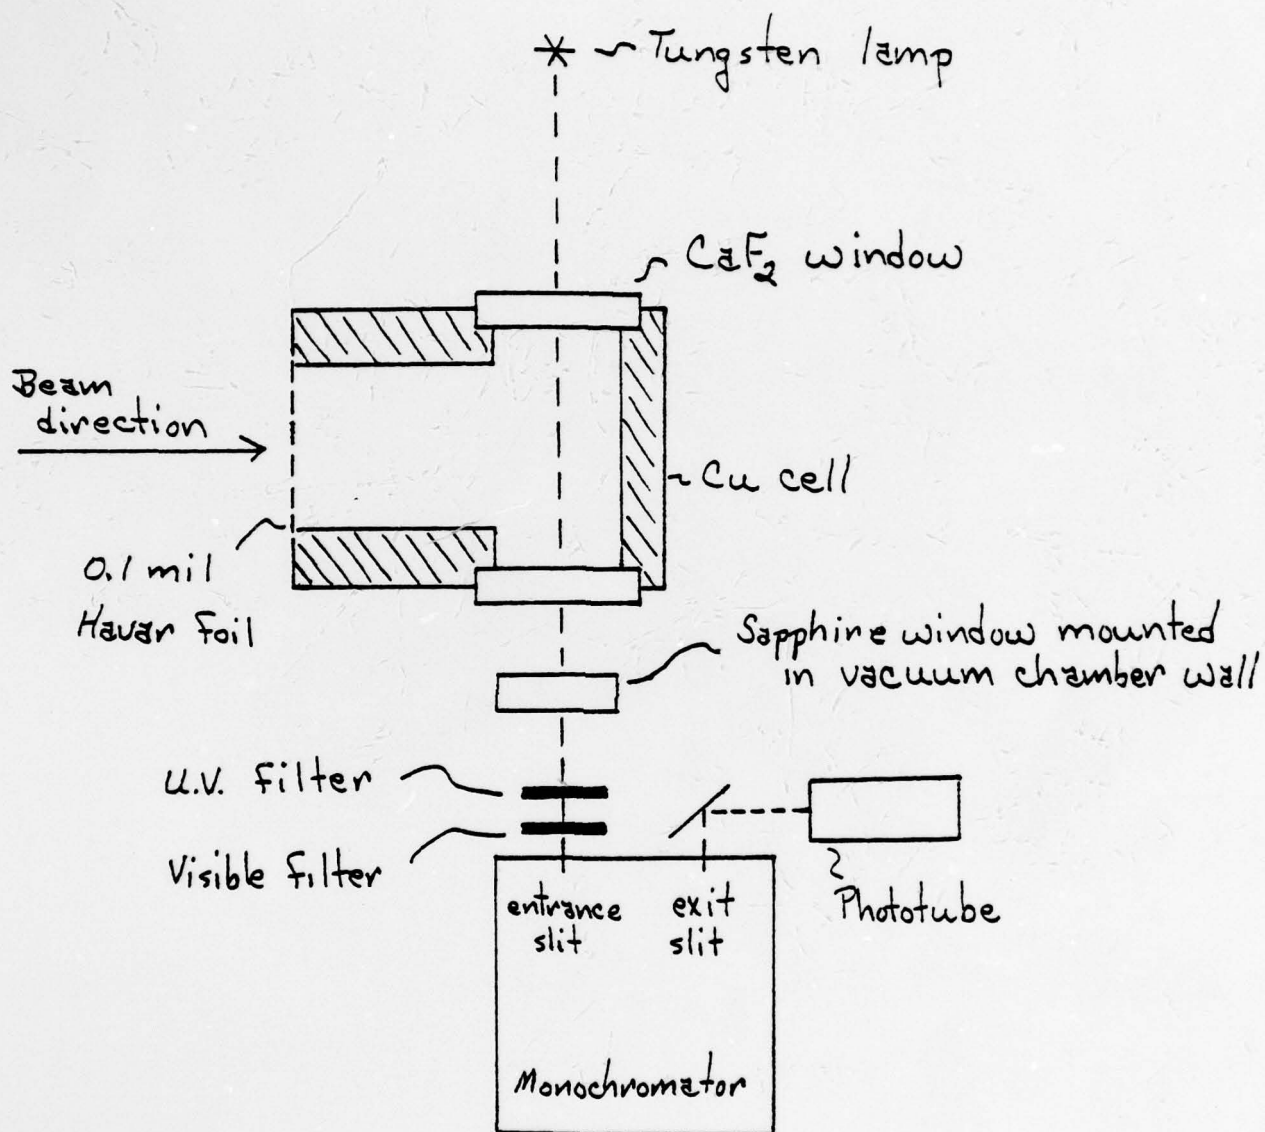 Tungsten lamp
CaF₂ window
Beam
direction
Cu cell
0.1 mil
Havar foil
Sapphire window mounted
in vacuum chamber wall
U.V. filter
Visible filter
Phototube
entrance
slit
exit
slit
Monochromator